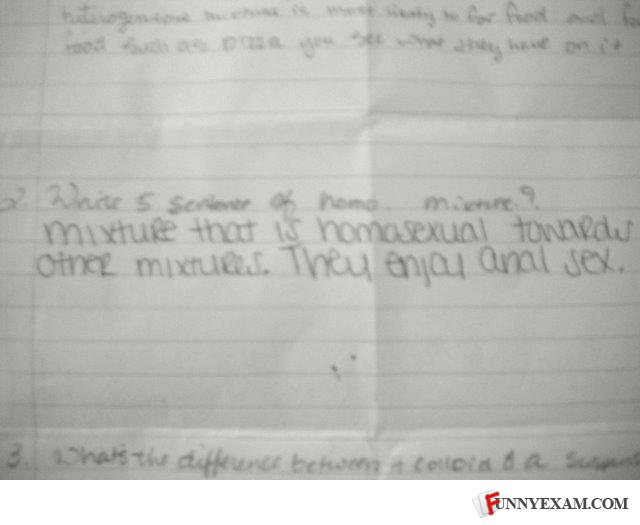 heterogeneous mixture is most likely to for food and f
food such as pizza you see what they have on it
2. Write 5 sentence of homo. mixture?
mixture that is homasexual towards
other mixtures. They enjoy anal sex.
3. Whats the difference between a colloid & a suspens
FUNNYEXAM.COM